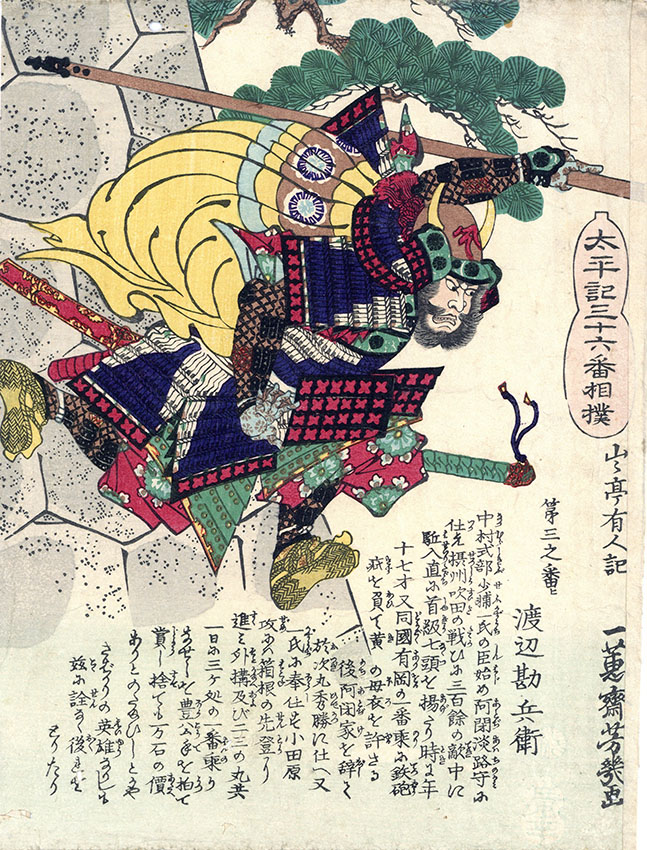 太平記三十六番相撲
山々亭有人記
一蕙齋芳幾画
第三之番
渡辺勘兵衛
中村式部少輔一氏の臣始め阿閉淡路守に
仕を摂州吹田の戦ひに三百餘の敵中に
駈入直に首級七頭を揚たり時に年
十七才又同國有岡の一番乗に鉄砲
疵を負て黄の母衣を許さる
後阿閉家を辞して
於次丸秀勝に仕へ又
一氏に奉仕せり小田原
攻に箱根の先登り
進み外構及び二三の丸共
一日に三ケ処の一番乗り
豊公手を拍て
賞し捨ても一万石の價
ありと
英雄
後